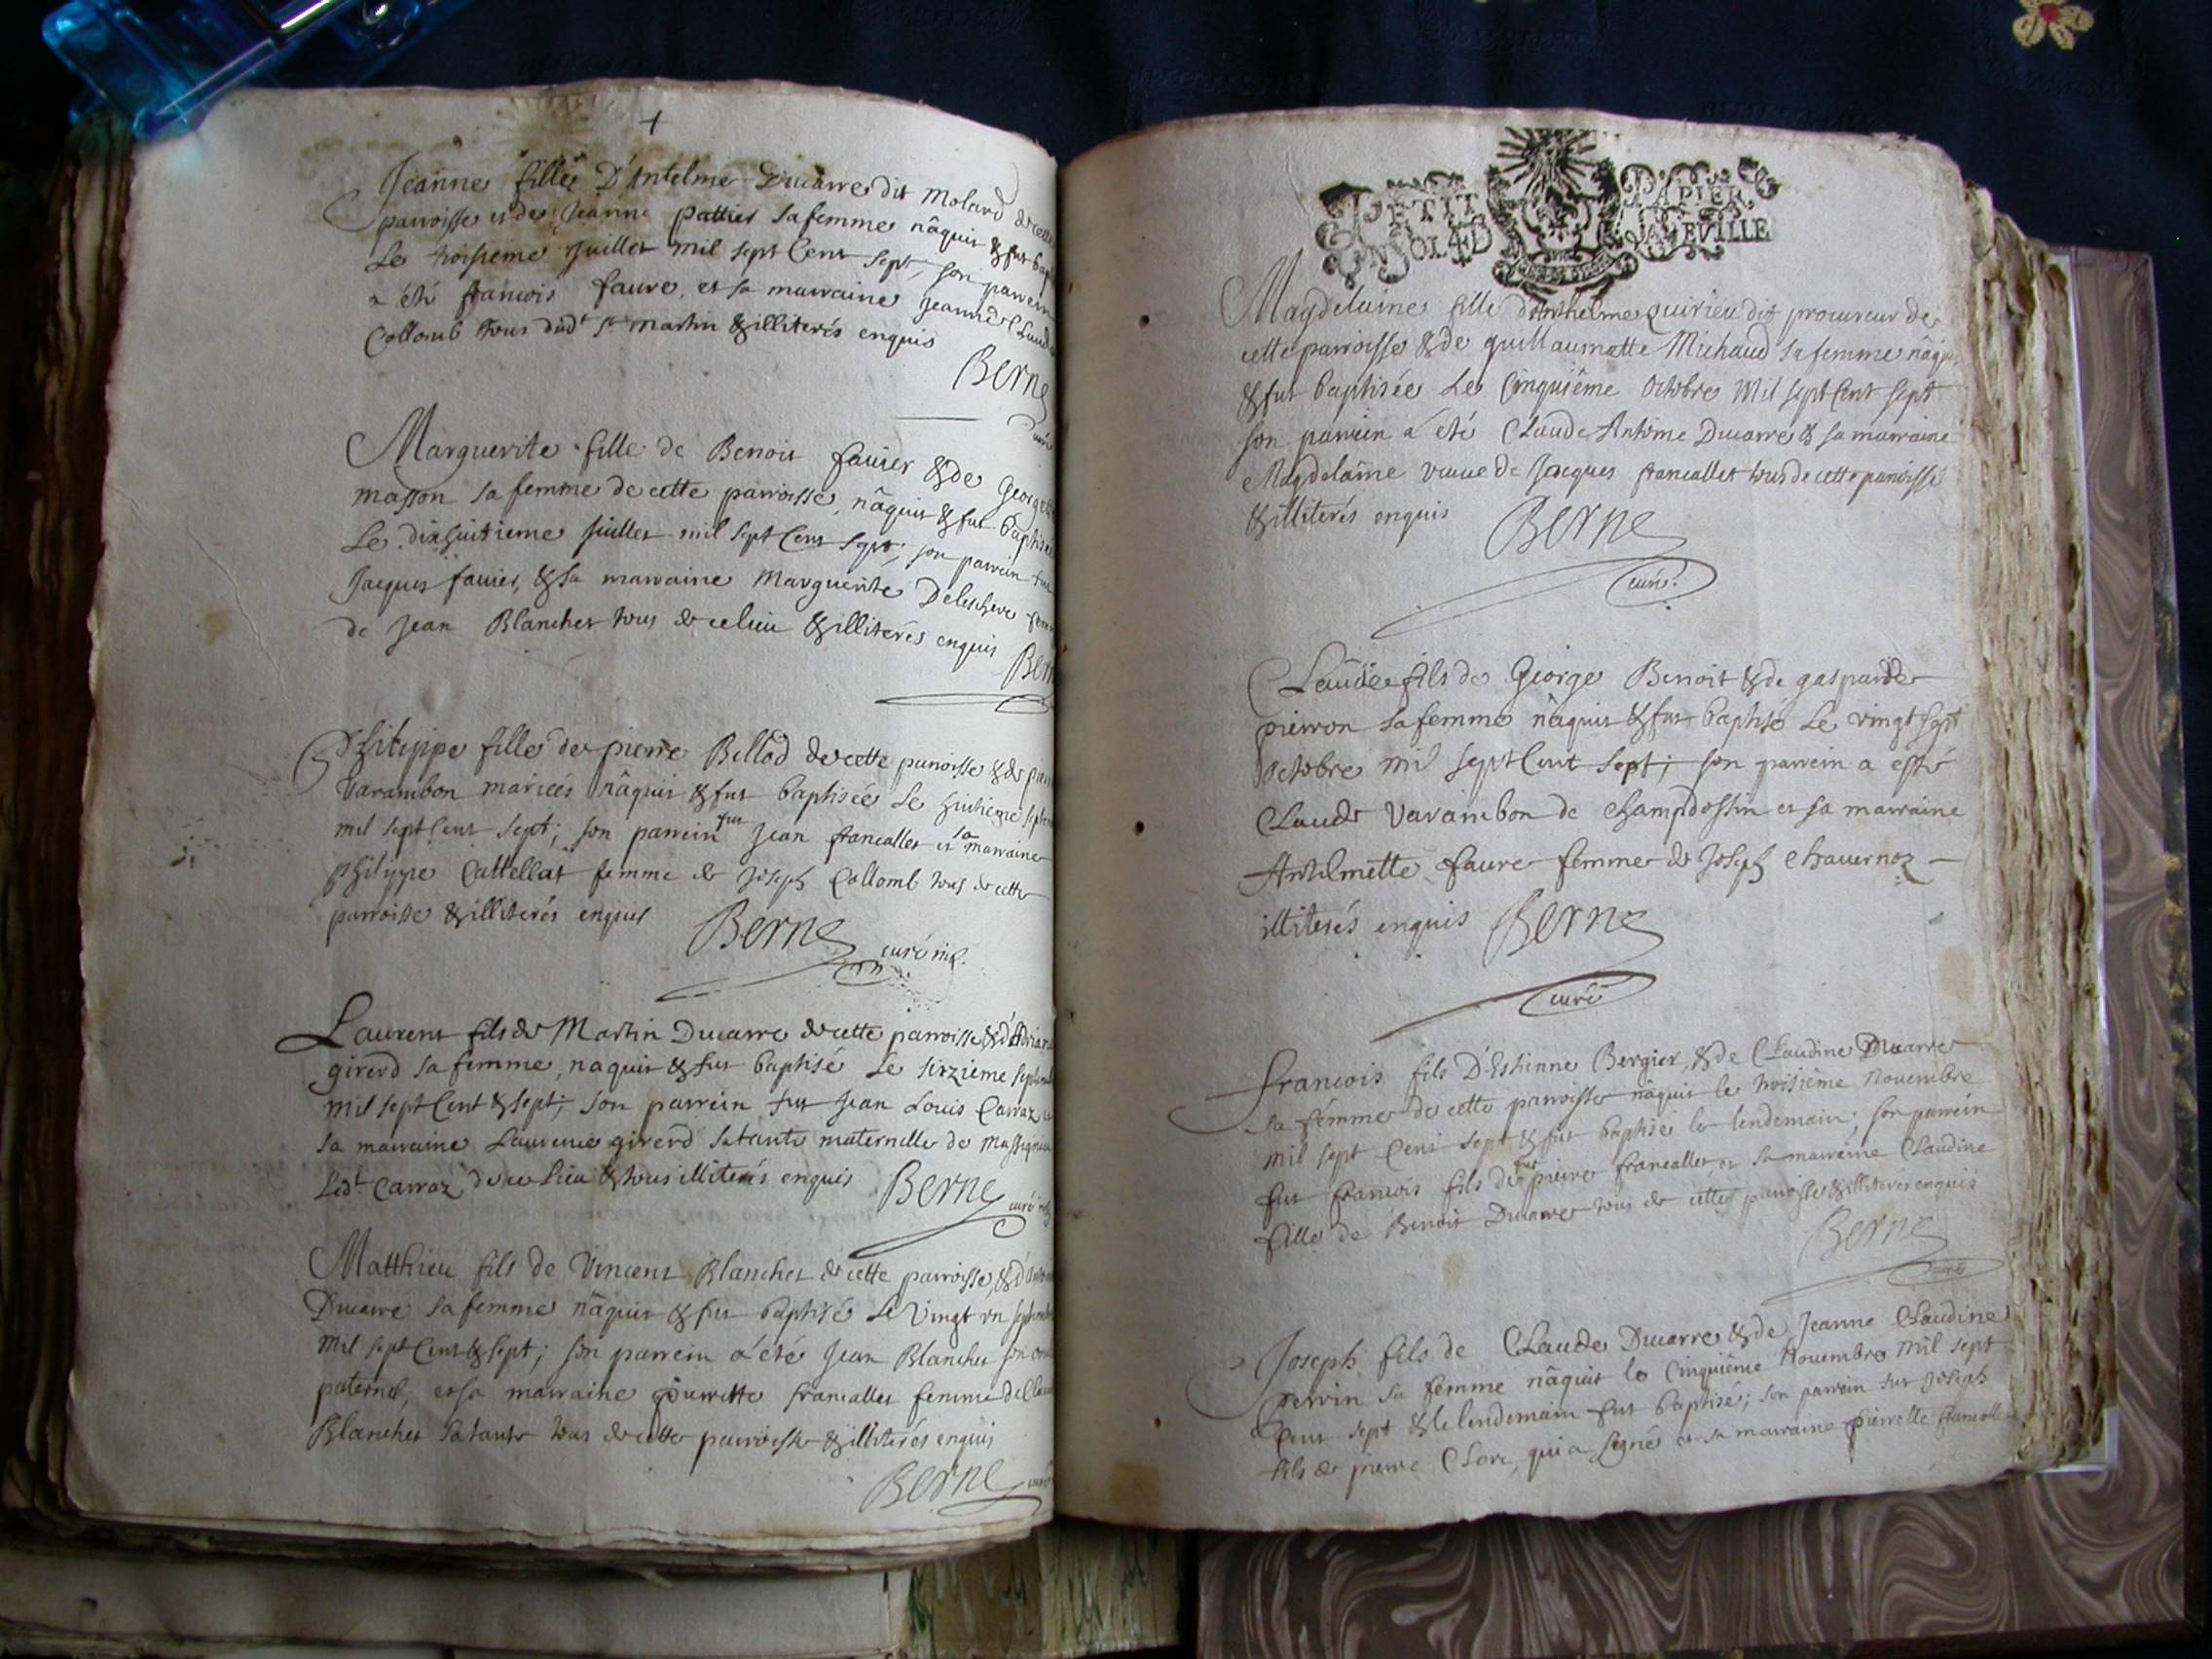 Jeanne fille D'Antelme Ducarre dit Molard de cette
parroisse et de Jeanne pattier sa femme nâquit & fut bap
Le troisieme Juillet mil sept Cent sept, son parrein
a été francois faure, et sa marraine Jeanne Claud
Collomb tous dudt st martin & illiterés enquis
Berne
curé
Marguerite fille de Benoit favier & de George
masson sa femme de cette parroisse, nâquit & fut baptisée
Le dixhuitieme juillet mil sept Cent sept; son parrein fut
Jacques favier, & sa marraine Marguerite Deleschere
de Jean Blanchet tous de ce lieu & illiterés enquis
Bern
Philippe fille de pierre Bellod de cette parroisse & de
Varambon mariées nâquit & fut baptisée Le huitieme sept
mil sept Cent sept; son parrein fut Jean francallet et sa marraine
philippe Cattellat femme de Joseph Collomb tous de cette
parroisse & illiterés enquis
Berne
curé
Laurent fils de Martin Ducarre de cette parroisse & d'Adrian
girerd sa femme, naquit & fut baptisé Le seizieme septemb
mil sept Cent & sept; son parrein fut Jean Louis Carraz
sa marraine Laurence girerd sa tante maternelle de Massigneu
Ledt Carraz de ce Lieu & tous illiterés enquis
Berne
curé
Matthieu fils de Vincent Blanchet de cette parroisse, &
Ducarre sa femme nâquit & fut baptisé Le Vingt un septemb
mil sept Cent & sept; son parrein a été Jean Blanchet son
paternel, et sa marraine pierrette francallet femme de
Blanchet sa tante tous de cette parroisse & illiterés enquis
Berne curé
PETIT PAPIER,
NOLED VAEVILLE
Magdelaine fille d'Anthelme Quirieu dit procureur de
cette parroisse & de guillaumette Michaud sa femme nâqu
& fut baptisée Le Cinquiême Octobre Mil sept Cent sept
son parrein a été Claude Antôme Ducarre & sa marraine
Magdelaine veuve de Jacques francallet tous de cette parroisse
& illiterés enquis
Berne
curé.
Claude fils de George Benoit & de gasparde
pierron sa femme nâquit & fut baptisé Le vingt sept
Octobre mil sept Cent sept; son parrein a esté
Claude Varambon de Champdossin et sa marraine
Anthelmette faure femme de Joseph Chavernoz —
illiterés enquis
Berne
curé
francois fils D'Estienne Bergier, & de Claudine Ducarre
sa fémme de cette parroisse nâquit le troisième Novembre
mil sept Cent sept & fut baptisé le lendemain; son parrein
fut francois fils de fut pierre francallet et sa marraine Claudine
fille de Benoit Ducarre tous de cette parroisse & illiterés enquis
Berne
curé
Joseph fils de Claude Ducarre & de Jeanne Claudine
perrin sa femme nâquit le Cinquiême Novembre mil sept
Cent sept & le lendemain fut baptisé; son parrein fut Joseph
fils de pierre Clerc, qui a signé et sa marraine pierrette francalle